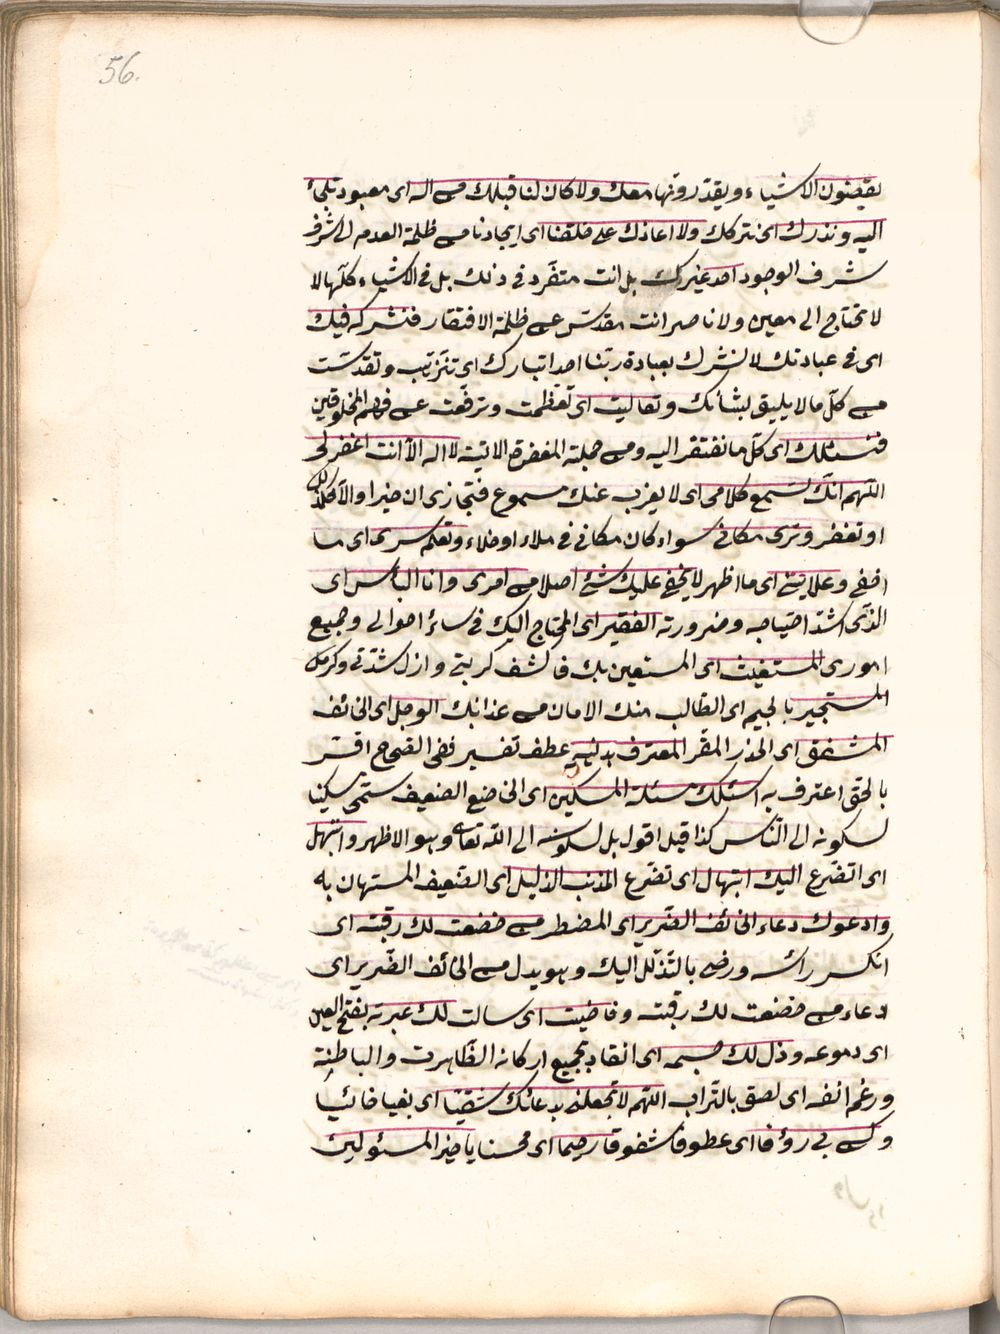 56.
يقضون الاشياء ويقدّرونها معك ولا كان لنا قبلك من اله اى معبود نلجئ
اليه ونذرك اى نتركك ولا اعانك على خلقنا اى ايجادنا من ظلمة العدم الى شرف
شرف الوجود احد غيرك بل انت متفرد فى ذلك بل فى الاشياء كلّها لا
لا تحتاج الى معين ولا ناصر انت مقدّس عن ظلمة الافتقار فنشركه فيك
اى فى عبادتك لا نشرك بعبادة ربّنا احدا تباركت اى تنزّهت وتقدّست
من كلّ ما لا يليق بشأنك وتعاليت اى تعظّمت وترفّعت عن فهم المخلوقين
فنسئلك اى كلّ ما نفتقر اليه ومن جملته المغفرة الاتية لا اله الّا انت اغفر لى
اللّهم انّك تسمع كلامى اى لا يعزب عنك مسموع فتجازى ان خيرا والّا فكذلك
او تغفر وترى مكانى سواء كان مكانى فى ملاء او خلاء وتعلم سرى اى ما
اخفى وعلانيتى اى ما اظهر لا يخفى عليك شئ اصلا من امرى وانا البائس اى
الذى اشتدّ احتياجه وضرورته الفقير اى المحتاج اليك فى سائر احوالى وجميع
امورى المستغيث اى المستعين بك فاكشف كربتى وازل شدّتى وكرمك
المستجير بالجيم اى الطّالب منك الامان من عذابك الوجل اى الخائف
المشفق اى الحذر المقرّ المعترف بذنبه عطف تفسير ففى الصّحاح اقرّ
بالحق اعترف به اسئلك مسئلة المسكين اى الخاضع الضعيف سمّى مسكينا
لسكونه الى النّاس كذا قيل اقول بل لسكونه الى اللّه تعالى وهو الاظهر وابتهل
اى اتضرّع اليك ابتهال اى تضرّع المذنب الذليل اى الضّعيف المستهان به
وادعوك دعاء الخائف الضّرير اى المضطر من خضعت لك رقبته اى
انكسر رأسه ورضى بالتذلّل اليك وهو بدل من الخائف الضّرير اى
دعاء من خضعت لك رقبته وفاضت اى سالت لك عبرته بفتح العين
اى دموعه وذل لك جسمه اى انقاد بجميع اركانه الظّاهرة والباطنة
ورغم انفه اى لصق بالتّراب اللّهم لا تجعلنى بدعائك شقيّا اى بغيا خائبا
وكن بى رؤفا اى عطوفا شفوقا رحيما اى محسنا يا خير المسئولين